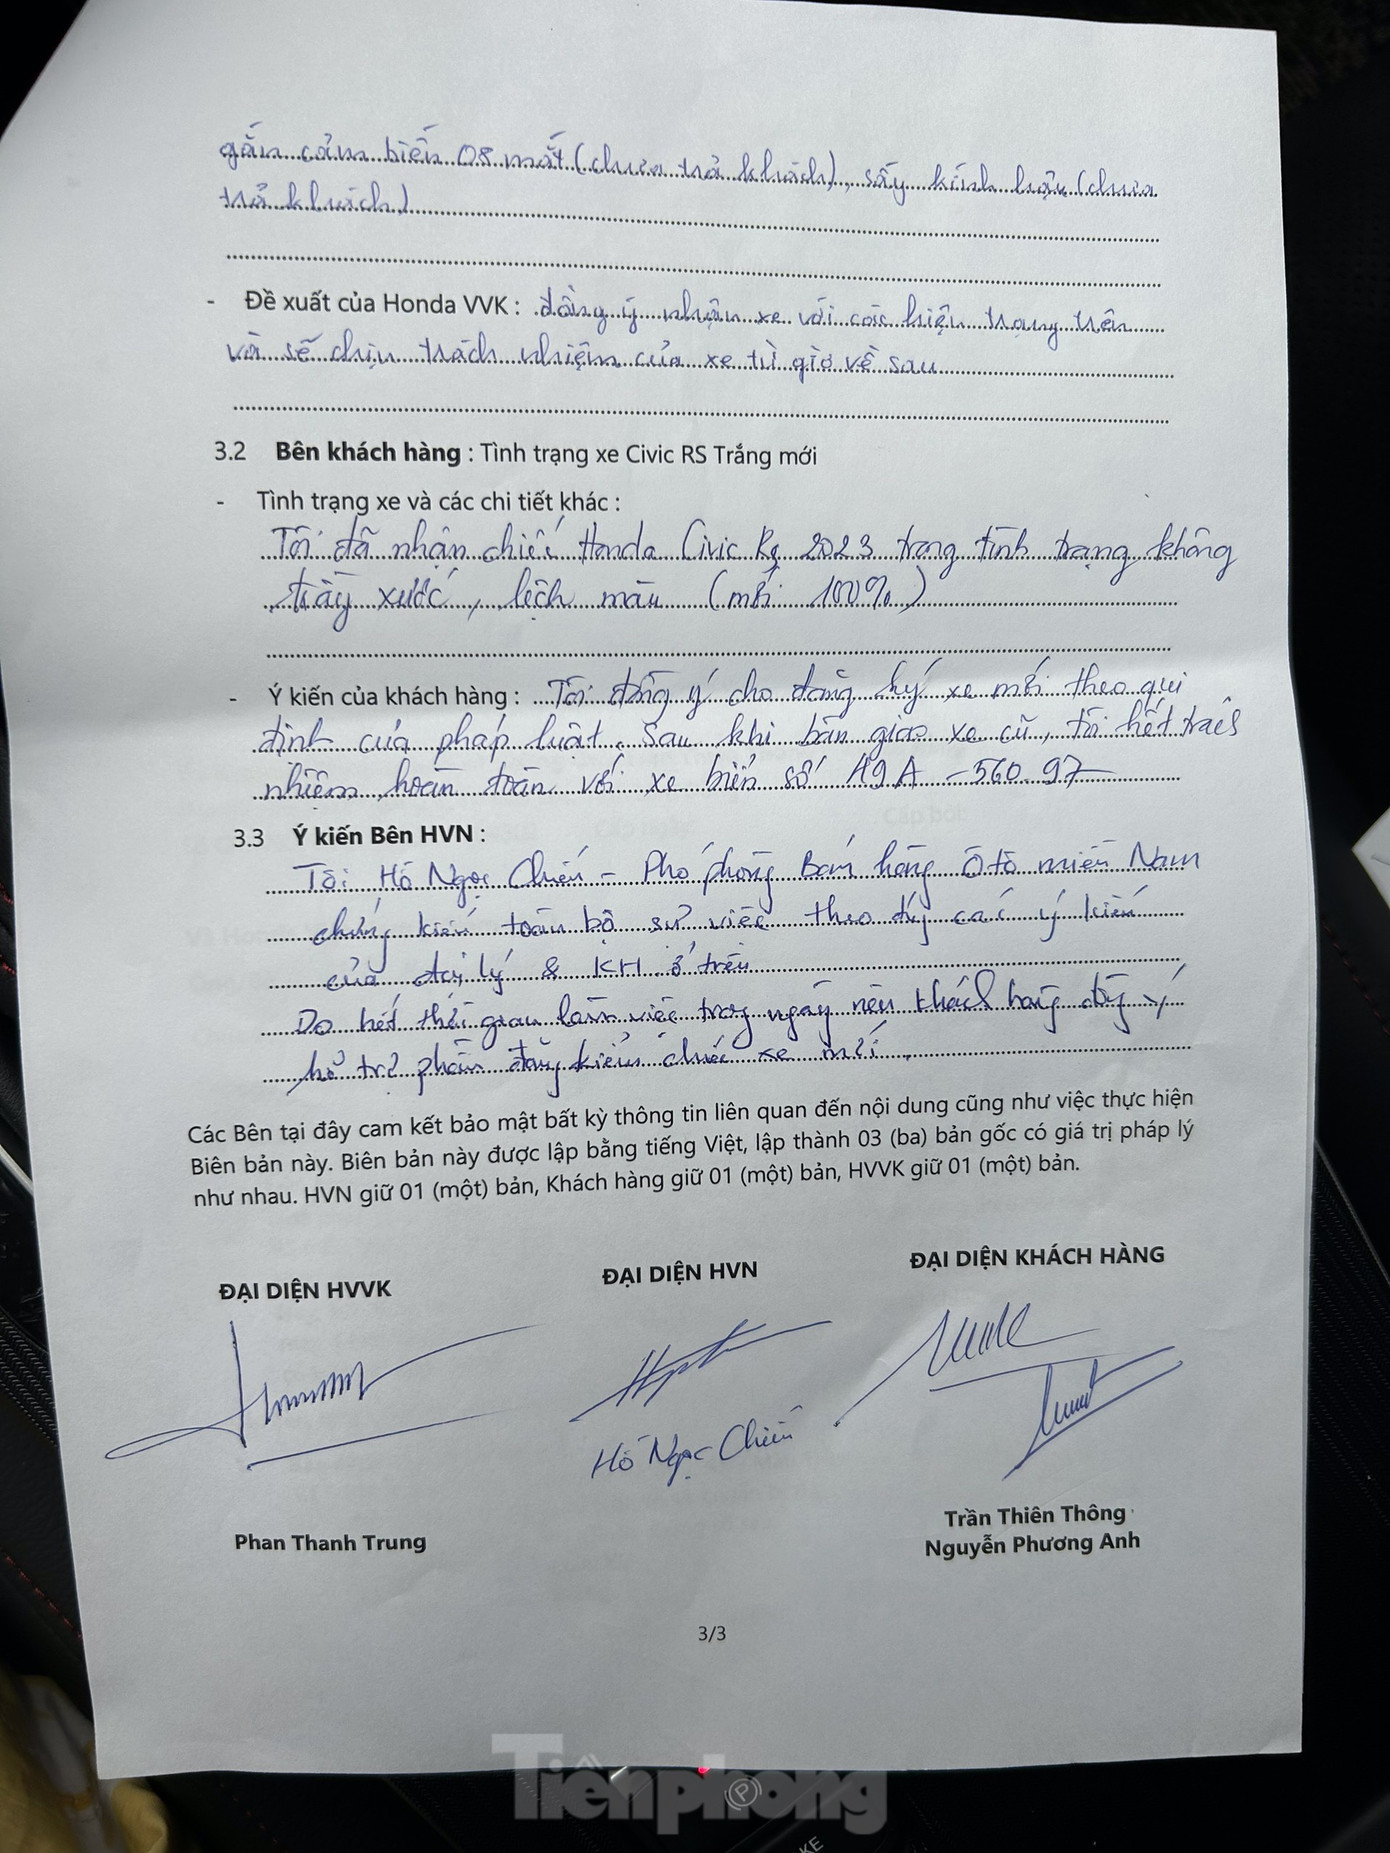 gắn cảm biến 08 mắt (chưa trả khách), sấy kính hậu (chưa
trả khách)
- Đề xuất của Honda VVK : đồng ý nhận xe với các hiện trạng trên
và sẽ chịu trách nhiệm của xe từ giờ về sau
3.2 Bên khách hàng : Tình trạng xe Civic RS Trắng mới
- Tình trạng xe và các chi tiết khác :
Tôi đã nhận chiếc Honda Civic RS 2023 trong tình trạng không
trầy xước, lệch màu (mới 100%)
- Ý kiến của khách hàng : Tôi đồng ý cho đăng ký xe mới theo qui
định của pháp luật. Sau khi bàn giao xe cũ, tôi hết trách
nhiệm hoàn toàn với xe biển số 49A - 560.97
3.3 Ý kiến Bên HVN :
Tôi Hồ Ngọc Chiến - Phó phòng Bán hàng Ô tô miền Nam
chứng kiến toàn bộ sự việc theo đúng các ý kiến
của đại lý & KH ở trên
Do hết thời gian làm việc trong ngày nên khách hàng đồng ý
hỗ trợ phần đăng kiểm chiếc xe mới.
Các Bên tại đây cam kết bảo mật bất kỳ thông tin liên quan đến nội dung cũng như việc thực hiện
Biên bản này. Biên bản này được lập bằng tiếng Việt, lập thành 03 (ba) bản gốc có giá trị pháp lý
như nhau. HVN giữ 01 (một) bản, Khách hàng giữ 01 (một) bản, HVVK giữ 01 (một) bản.
ĐẠI DIỆN HVVK ĐẠI DIỆN HVN ĐẠI DIỆN KHÁCH HÀNG
Hồ Ngọc Chiến
Phan Thanh Trung
Trần Thiên Thông
Nguyễn Phương Anh
3/3
Tiền phong
P
KE